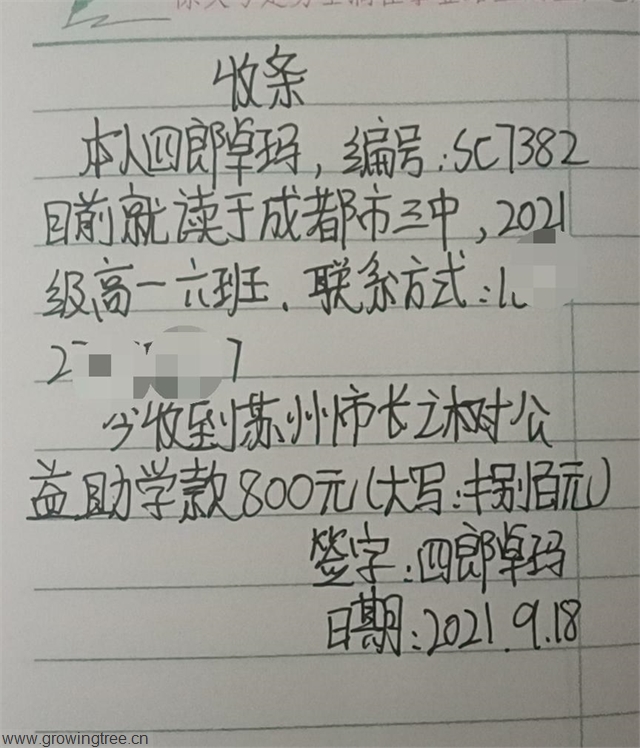 收条
本人四郎卓玛，编号：SC7382
目前就读于成都市三中，2021
级高一六班．联系方式：1
2 7
今收到苏州市长之树对公
益助学款800元（大写：捌百元）
签字：四郎卓玛
日期：2021.9.18
www.growingtree.cn